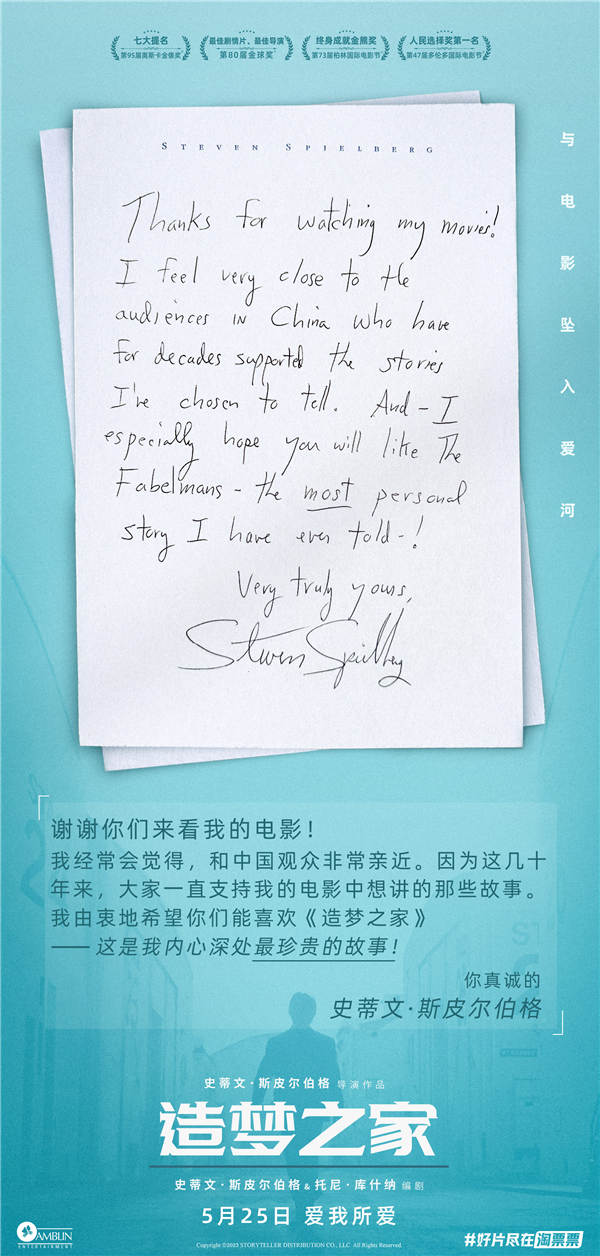 七大提名
第95届奥斯卡金像奖
最佳剧情片、最佳导演
第80届金球奖
终身成就金熊奖
第73届柏林国际电影节
人民选择奖第一名
第47届多伦多国际电影节
与电影坠入爱河
STEVEN SPIELBERG
Thanks for watching my movies!
I feel very close to the
audiences in China who have
for decades supported the stories
I've chosen to tell. And - I
especially hope you will like The
Fabelmans - the most personal
story I have ever told-!
Very truly yours,
Steven Spielberg
谢谢你们来看我的电影!
我经常会觉得,和中国观众非常亲近。因为这几十
年来,大家一直支持我的电影中想讲的那些故事。
我由衷地希望你们能喜欢《造梦之家》
—— 这是我内心深处最珍贵的故事!
你真诚的
史蒂文·斯皮尔伯格
史蒂文·斯皮尔伯格 导演作品
造梦之家
史蒂文·斯皮尔伯格 & 托尼·库什纳 编剧
5月25日 爱我所爱
AMBLIN
ENTERTAINMENT
Copyright ©2023 STORYTELLER DISTRIBUTION CO., LLC. All Rights Reserved.
#好片尽在淘票票